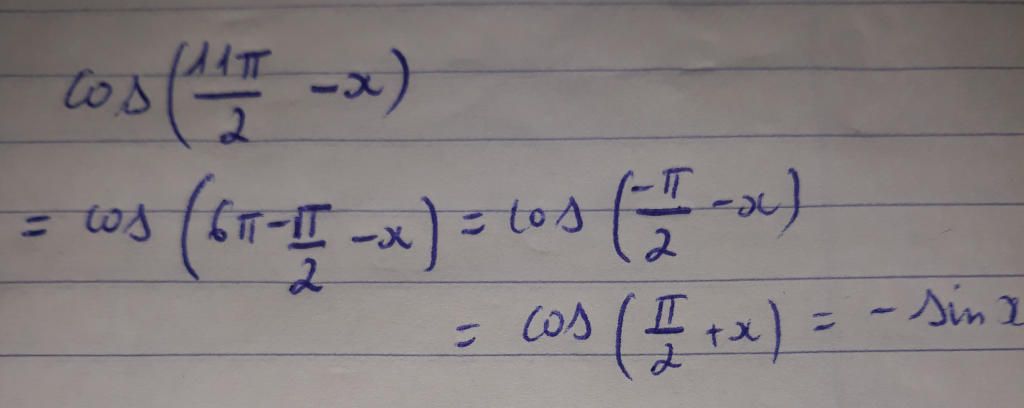 cos(11π/2 - x)
= cos(6π - π/2 - x) = cos(-π/2 - x)
= cos(π/2 + x) = - sin x